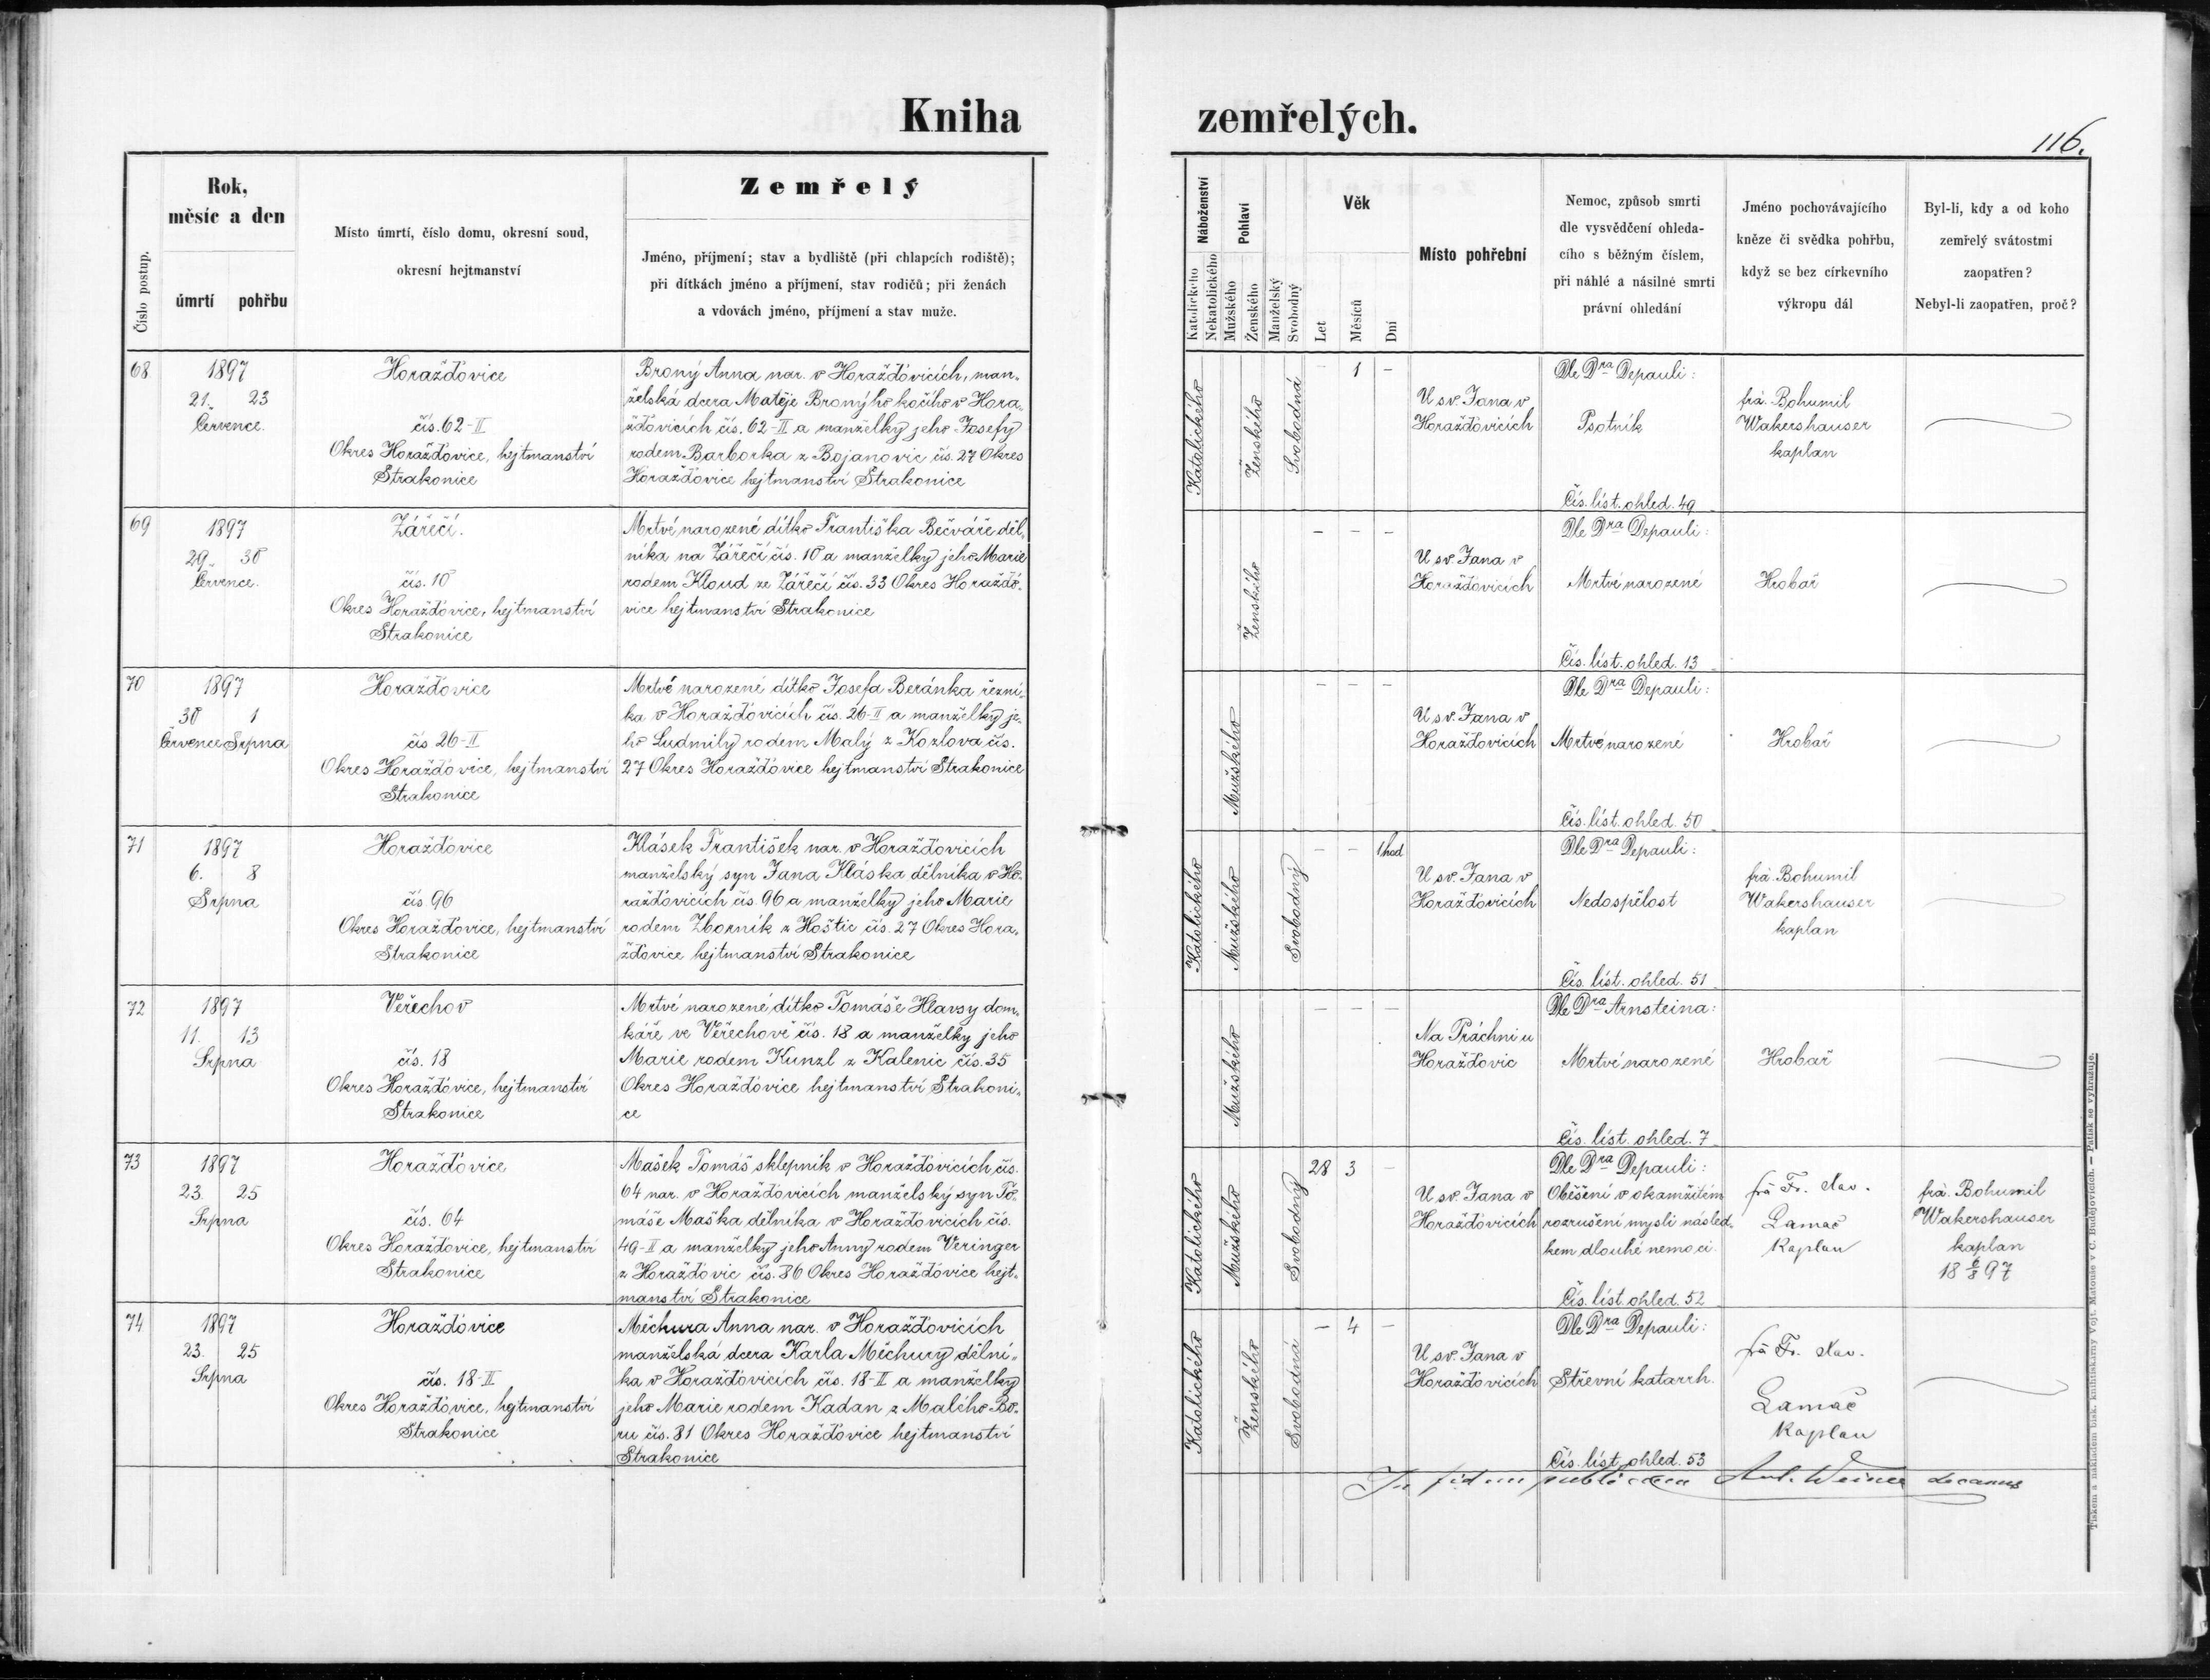 Kniha
zemřelých.
116.
Číslo postup.
Rok,
měsíc a den
úmrtí pohřbu
Místo úmrtí, číslo domu, okresní soud,
okresní hejtmanství
Zemřelý
Jméno, příjmení; stav a bydliště (při chlapcích rodiště);
při dítkách jméno a příjmení, stav rodičů; při ženách
a vdovách jméno, příjmení a stav muže.
Náboženství
Katolického
Nekatolického
Pohlaví
Mužského
Ženského
Manželský
Svobodný
Věk
Let
Měsíců
Dní
Místo pohřební
Nemoc, způsob smrti
dle vysvědčení ohleda-
cího s běžným číslem,
při náhlé a násilné smrti
právní ohledání
Jméno pochovávajícího
kněze či svědka pohřbu,
když se bez církevního
výkropu dál
Byl-li, kdy a od koho
zemřelý svátostmi
zaopatřen?
Nebyl-li zaopatřen, proč?
68
1897
21. 23
Července.
Horažďovice
čís. 62-II
Okres Horažďovice, hejtmanství
Strakonice
Brony Anna nar. v Horažďovicích, man-
želská dcera Matěje Bronýho kočího v Hora-
žďovicích čís. 62-II a manželky jeho Josefy
rodem Barborka z Bojanovic čís. 27 Okres
Horažďovice hejtmanství Strakonice
Katolického
Ženského
Svobodná
- 1 -
U sv. Jana v
Horažďovicích
Dle Dra Depauli:
Psotník
Čís. líst. ohled. 49
frá. Bohumil
Wakershauser
kaplan
69
1897
29. 30
Července.
Zářečí.
čís. 10
Okres Horažďovice, hejtmanství
Strakonice
Mrtvě narozené dítko Františka Bečváře děl-
níka na Zářečí čís. 10 a manželky jeho Marie
rodem Kloud ze Zářečí čís. 33 Okres Horažďo-
vice hejtmanství Strakonice
Ženského
- - -
U sv. Jana v
Horažďovicích
Dle Dra Depauli:
Mrtvě narozené
Čís. líst. ohled. 13
Hrobař
70
1897
30 1
Července Srpna
Horažďovice
čís 26-II
Okres Horažďovice, hejtmanství
Strakonice
Mrtvě narozené dítko Josefa Beránka řezní-
ka v Horažďovicích čís. 26-II a manželky je-
ho Ludmily rodem Malý z Kozlova čís.
27 Okres Horažďovice hejtmanství Strakonice
Mužského
- - -
U sv. Jana v
Horažďovicích
Dle Dra Depauli:
Mrtvě narozené
Čís. líst. ohled. 50
Hrobař
71
1897
6. 8
Srpna
Horažďovice
čís 96
Okres Horažďovice, hejtmanství
Strakonice
Klásek František nar. v Horažďovicích
manželský syn Jana Kláska dělníka v Ho-
ražďovicích čís. 96 a manželky jeho Marie
rodem Zborník z Hoštic čís. 27 Okres Hora-
žďovice hejtmanství Strakonice
Katolického
Mužského
Svobodný
- - 1hod
U sv. Jana v
Horažďovicích
Dle Dra Depauli:
Nedospělost
Čís. líst. ohled. 51
frá. Bohumil
Wakershauser
kaplan
72
1897
11. 13
Srpna
Veřechov
čís. 18
Okres Horažďovice, hejtmanství
Strakonice
Mrtvě narozené dítko Tomáše Hlavsy dom-
káře ve Veřechově čís. 18 a manželky jeho
Marie rodem Kunzl z Kalenic čís. 35
Okres Horažďovice hejtmanství Strakoni-
ce
Mužského
- - -
Na Práchni u
Horažďovic
Dle Dra Arnsteina:
Mrtvě narozené
Čís. líst. ohled. 7
Hrobař
73
1897
23. 25
Srpna
Horažďovice
čís. 64
Okres Horažďovice, hejtmanství
Strakonice
Mašek Tomáš sklepník v Horažďovicích čís.
64 nar. v Horažďovicích manželský syn To-
máše Maška dělníka v Horažďovicích čís.
49-II a manželky jeho Anny rodem Veringer
z Horažďovic čís. 86 Okres Horažďovice hejt-
manství Strakonice
Katolického
Mužského
Svobodný
28 3 -
U sv. Jana v
Horažďovicích
Dle Dra Depauli:
Oběšení v okamžitém
rozrušení mysli násled-
kem dlouhé nemoci.
Čís. líst. ohled. 52
frá Fr. Xav.
Lamač
Kaplan
frá. Bohumil
Wakershauser
kaplan
18 6/8 97
74
1897
23. 25
Srpna
Horažďovice
čís. 18-II
Okres Horažďovice, hejtmanství
Strakonice
Měchura Anna nar. v Horažďovicích
manželská dcera Karla Měchury dělní-
ka v Horažďovicích čís. 18-II a manželky
jeho Marie rodem Kadan z Malého Bo-
ru čís. 81 Okres Horažďovice hejtmanství
Strakonice
Katolického
Ženského
Svobodná
- 4 -
U sv. Jana v
Horažďovicích
Dle Dra Depauli:
Střevní katarrh.
Čís. líst. ohled. 53
frá Fr. Xav.
Lamač
Kaplan
In fidem publicam Ant. Weiner decanus
Tiskem a nákladem tisk. knihtiskárny Vojt. Matouše v Č. Budějovicích. — Patisk se vyhražuje.